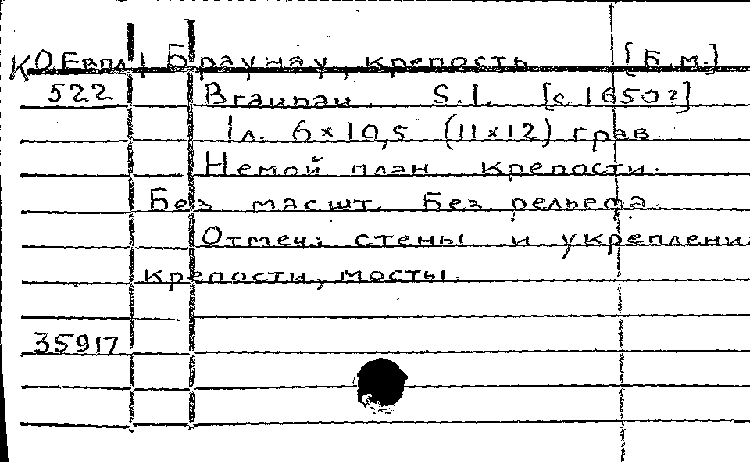 КО Евпл 1 Браунау, крепость [Б.м.]
522 Braunau. S.l. [c. 1650?]
1 л. 6×10,5 (11×12) грав
Немой план крепости.
Без масшт. Без рельефа.
Отмеч.: стены и укреплени
крепости, мосты.
35917